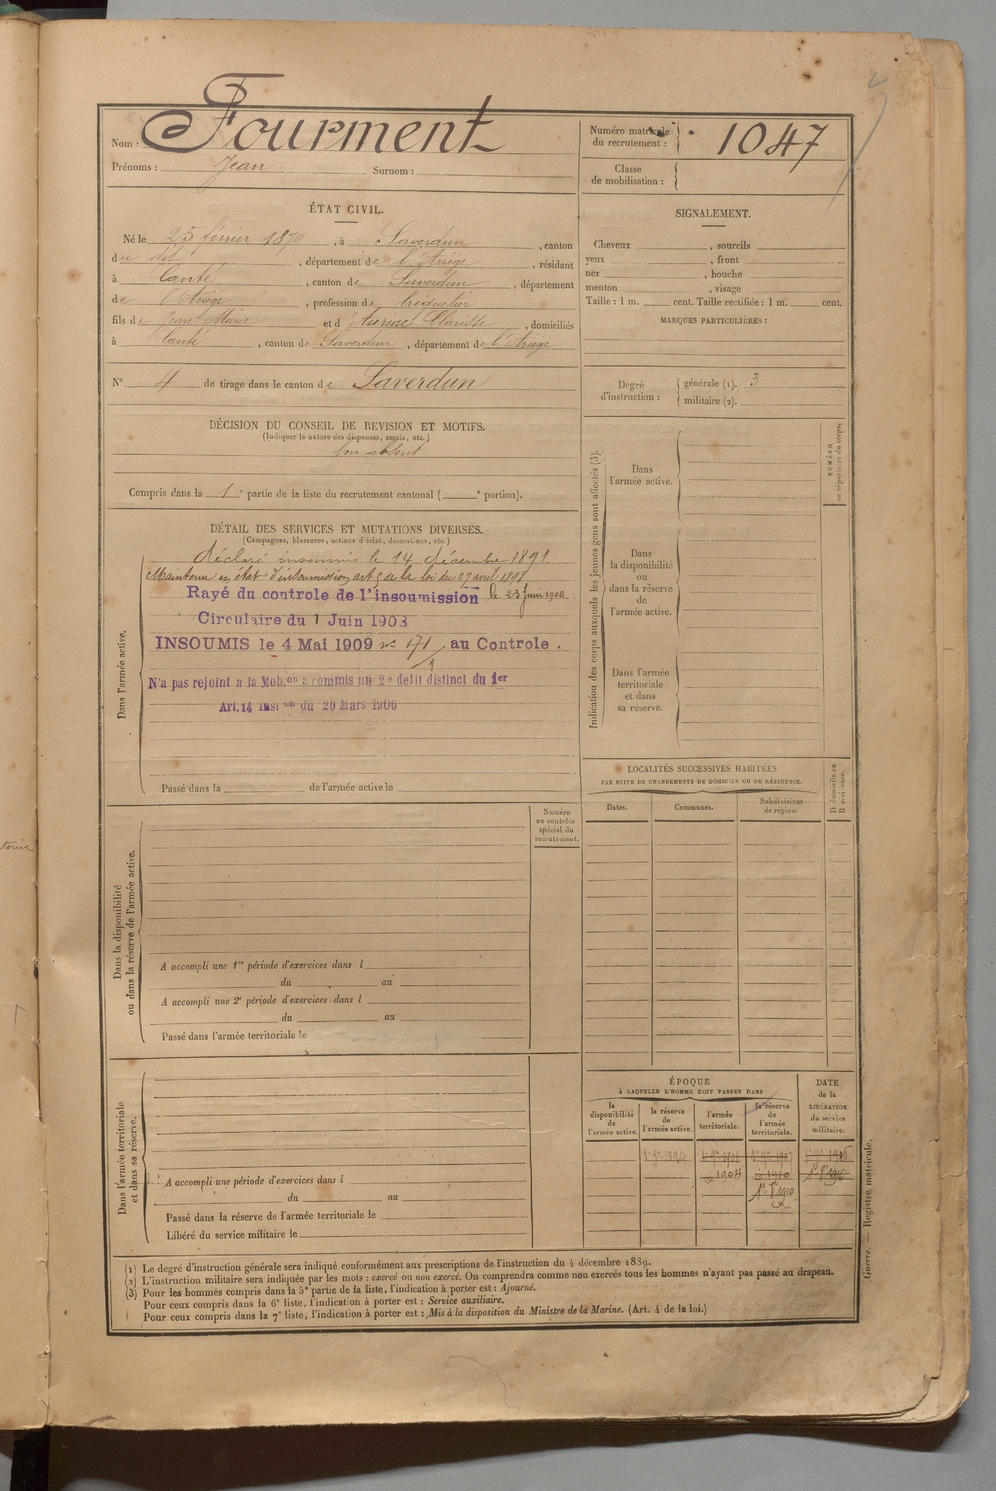 Nom : Fourment
Prénoms : Jean Surnom :
Numéro matricule du recrutement : 1047
Classe de mobilisation :
ÉTAT CIVIL.
Né le 25 février 1870, à Saverdun, canton
du dit, département de l'Ariège, résidant
à Canté, canton de Saverdun, département
de l'Ariège, profession de
fils de Jean Marie et d'Auriac Clarisse, domiciliés
à Canté, canton de Saverdun, département de l'Ariège
N° 4 de tirage dans le canton de Saverdun
DÉCISION DU CONSEIL DE REVISION ET MOTIFS.
(Indiquer la nature des dispenses, sursis, etc.)
bon absent
Compris dans la 1e partie de la liste du recrutement cantonal ( e portion).
DÉTAIL DES SERVICES ET MUTATIONS DIVERSES.
(Campagnes, blessures, actions d'éclat, décorations, etc.)
Dans l'armée active.
déclaré insoumis le 14 décembre 1891.
Maintenu en état d'insoumission, art 5 de la loi du 27 avril 1898
Rayé du controle de l'insoumission le 23 Juin 1903
Circulaire du 1 Juin 1903
INSOUMIS le 4 Mai 1909 n° 171 au Controle.
1
N'a pas rejoint a la Mob.on a commis un 2e delit distinct du 1er
Art. 14 Inst on du 20 Mars 1906
Passé dans la de l'armée active le
Dans la disponibilité ou dans la réserve de l'armée active.
Numéro au contrôle spécial du recrutement.
A accompli une 1re période d'exercices dans l
du au
A accompli une 2e période d'exercices dans l
du au
Passé dans l'armée territoriale le
Dans l'armée territoriale et dans sa réserve.
A accompli une période d'exercices dans l
du au
Passé dans la réserve de l'armée territoriale le
Libéré du service militaire le
SIGNALEMENT.
Cheveux , sourcils
yeux , front
nez , bouche
menton , visage
Taille : 1 m. cent. Taille rectifiée : 1 m. cent.
MARQUES PARTICULIÈRES :
Degré d'instruction :
générale (1). 3
militaire (2).
Indication des corps auxquels les jeunes gens sont affectés (3).
NUMÉRO au répertoire du corps.
Dans l'armée active.
Dans la disponibilité ou dans la réserve de l'armée active.
Dans l'armée territoriale et dans sa réserve.
LOCALITÉS SUCCESSIVES HABITÉES
PAR SUITE DE CHANGEMENTS DE DOMICILE OU DE RÉSIDENCE.
Dates. Communes. Subdivisions de région. D domicile ou R résidence.
ÉPOQUE
À LAQUELLE L'HOMME DOIT PASSER DANS
la disponibilité de l'armée active.
la réserve de l'armée active.
l'armée territoriale.
la réserve de l'armée territoriale.
DATE de la LIBÉRATION du service militaire.
1904 1910
1er 8bre 1910
Guerre. — Registre matricule.
(1) Le degré d'instruction générale sera indiqué conformément aux prescriptions de l'instruction du 4 décembre 1889.
(2) L'instruction militaire sera indiquée par les mots : exercé ou non exercé. On comprendra comme non exercés tous les hommes n'ayant pas passé au drapeau.
(3) Pour les hommes compris dans la 5e partie de la liste, l'indication à porter est : Ajourné.
Pour ceux compris dans la 6e liste, l'indication à porter est : Service auxiliaire.
Pour ceux compris dans la 7e liste, l'indication à porter est : Mis à la disposition du Ministre de la Marine. (Art. 4 de la loi.)